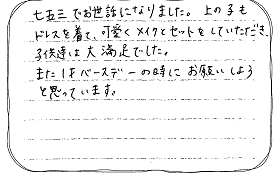 七五三でお世話になりました。上の子も
ドレスを着て、可愛くメイクとセットをしていただき、
子供達は大満足でした。
またバースデーの時にお願いしよう
と思っています。